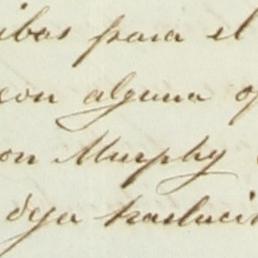 ibas para el
con alguna op
on Murphy
deja traslucir